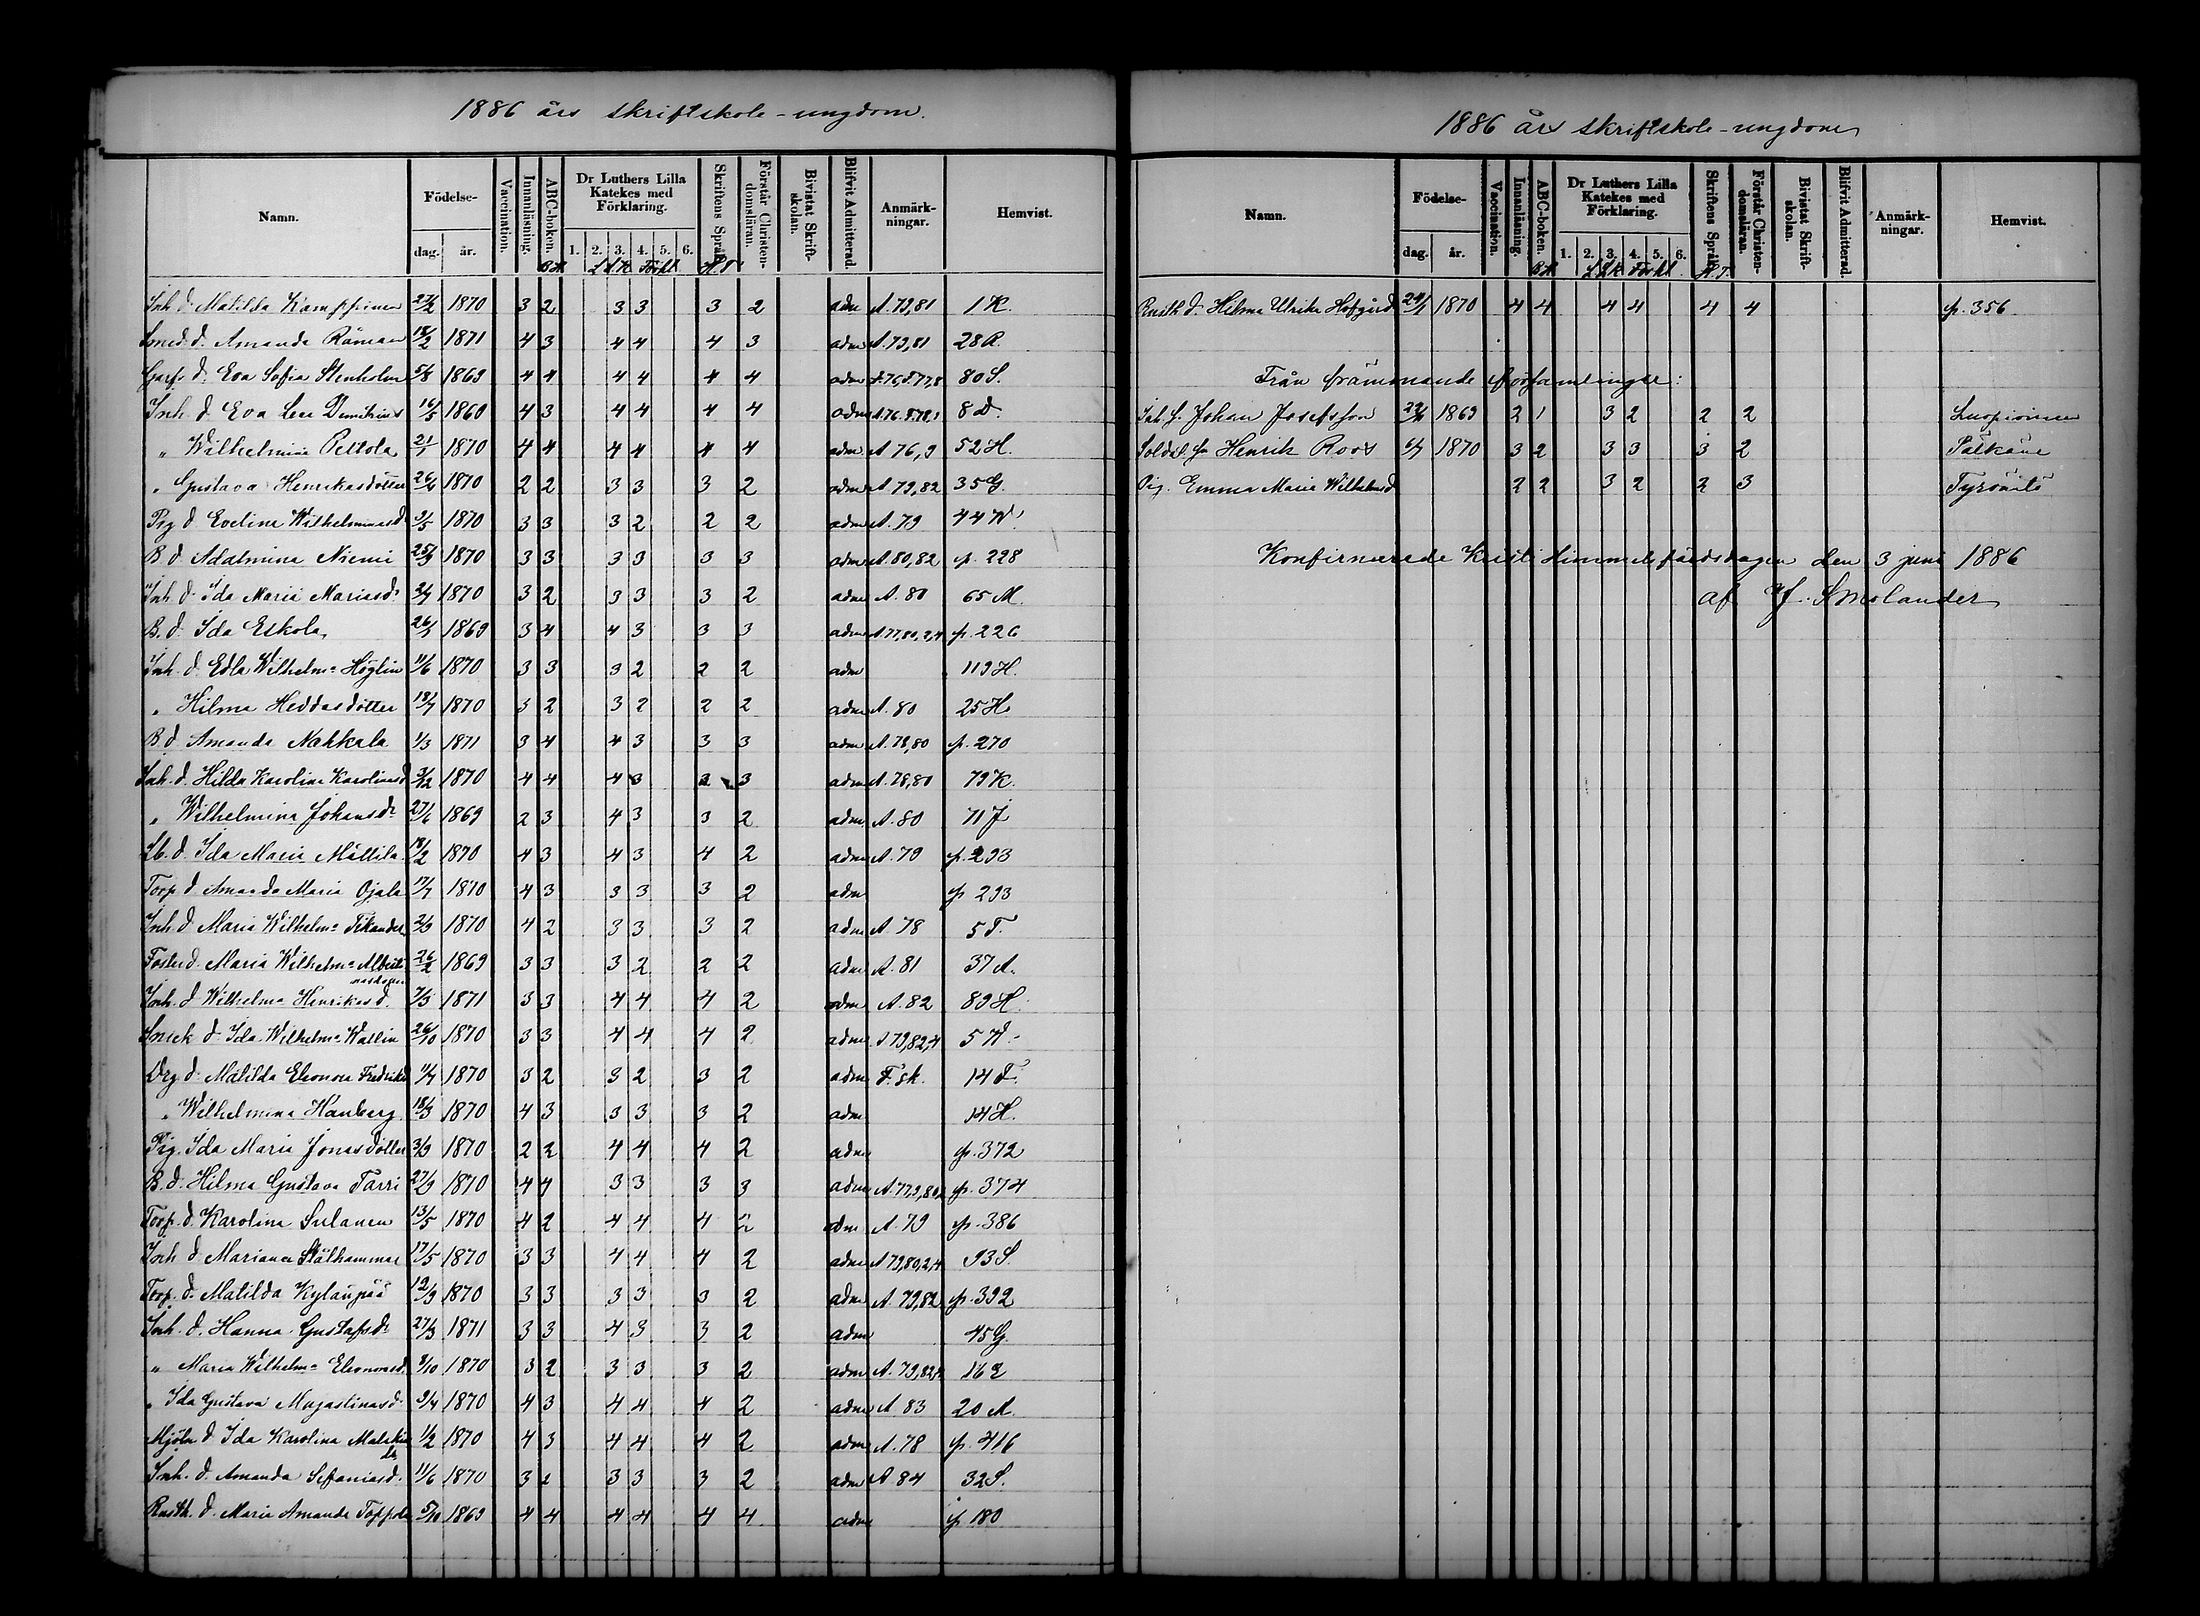 1886 års skriftskole-ungdom.
Namn. Födelse- dag. år. Vaccination. Innanläsning. ABC-boken. Dr Luthers Lilla Katekes med Förklaring. 1. 2. 3. 4. 5. 6. Skriftens Språk. Förstår Christen-domsläran. Bivistat Skrift-skolan. Blifvit Admitterad. Anmärk-ningar. Hemvist.
Inh. d. Matilda 27/2 1870 3 2 3 3 3 2 adm A. 79,81 1 K.
Smed. d. Amanda Råman 18/2 1871 4 3 4 4 4 3 adm A. 79,81 28 R.
d. Eva Sofia Stenholm 5/8 1869 4 4 4 4 4 4 adm 80 S.
Inh. d. Eva Lisa 16/5 1860 4 3 4 4 4 4 adm 8 D.
„ Wilhelmina Peltola 21/1 1870 4 4 4 4 4 4 adm A 76,9 52 H.
„ Gustava Henriksdotter 1870 2 2 3 3 3 2 adm A 79,82 35 G.
Pig d. Evelina Wilhelminasd 1870 3 3 3 2 2 2 adm A. 79 44 W.
B. d. Adalmina Niemi 25/9 1870 3 3 3 3 3 3 adm A. 80,82 p. 228
Inh. d. Ida Maria Mariasd. 1870 3 2 3 3 3 2 adm A. 80 65 M.
B. d. Ida Eskola 1869 3 4 4 3 3 3 adm A 77,80,2,4 p. 226
Inh. d. Edla Wilhelm:a Höglin 11/6 1870 3 3 3 2 2 2 adm 119 H.
„ Hilma Heddasdotter 18/7 1870 3 2 3 2 2 2 adm A. 80 25 H.
B. d. Amanda Nahkala 1/3 1871 3 4 4 3 3 3 adm A. 78,80 p. 270
Inh. d. Hilda Karolina Karolinasd 1870 4 4 4 3 3 3 adm A. 78,80 79 K.
„ Wilhelmina Johansdr 27/6 1869 2 3 4 3 3 2 adm A. 80 71 J
Lb. d. Ida Maria Mattila 18/2 1870 4 3 4 3 4 2 adm A. 79 p. 293
Torp. d. Amanda Maria Ojala 17/7 1870 4 3 3 3 3 2 adm p 293
Inh. d. Maria Wilhelm:a Tikander 1870 4 2 3 3 3 2 adm A. 78 5 T.
Foster d. Maria Wilhelm:a 26/2 1869 3 3 3 2 2 2 adm A. 81 37 A.
Inh. d. Wilhelma Henriksd. 1871 3 3 4 4 4 2 adm A. 82 89 H.
Snick. d. Ida Wilhelm:a Wallin 26/10 1870 3 3 4 4 4 2 adm A 79,82,4 5 W.
Drg. d. Matilda Eleonora 1/7 1870 3 2 3 2 3 2 adm F. sk. 14 F.
„ Wilhelmina Hanberg 18/3 1870 4 3 3 3 3 2 adm 14 H.
Pig. Ida Maria Jonasdotter 3/9 1870 2 2 4 4 4 2 adm p. 372
B. d. Hilma Gustava Tarri 27/9 1870 4 4 3 3 3 3 adm p. 374
Torp. d. Karolina Sulanen 13/5 1870 4 2 4 4 4 2 adm A. 79 p. 386
Inh. d. Mariana Stålhammar 17/5 1870 3 3 4 4 4 2 adm A 79,80,2,4 93 S.
Torp. d. Matilda Kylänpää 1870 3 3 3 3 3 2 adm A. 79,82 p. 392
Inh. d. Hanna Gustafsdr 27/3 1871 3 3 4 3 3 2 adm 45 G.
„ Maria Wilhelm:a Eleonorasd. 1870 3 2 3 3 3 2 adm 16 E
„ Ida Gustava Majastinasd. 9/4 1870 4 3 4 4 4 2 adm A 83 20 M.
Mjöln. d. Ida Karolina 1/2 1870 4 3 4 4 4 2 adm A. 78 p. 416
Inh. d. Amanda Sefaniasd. 11/6 1870 3 2 3 3 3 2 adm A 84 32 S.
Rusth. d. Maria Amanda Toppola 5/10 1869 4 4 4 4 4 4 adm p 180
1886 års skriftskole-ungdom
Namn. Födelse- dag. år. Vaccination. Innanläsning. ABC-boken. Dr Luthers Lilla Katekes med Förklaring. 1. 2. 3. 4. 5. 6. Skriftens Språk. Förstår Christen-domsläran. Bivistat Skrift-skolan. Blifvit Admitterad. Anmärk-ningar. Hemvist.
Rusth. d. Hilma Ulrika 1870 4 4 4 4 4 4 p. 356
Från främmande församlingar:
Inh. s. Johan Josefsson 1869 2 1 3 2 2 2 Luopioinen
Soldat. s. Henrik Roos 1870 3 2 3 3 3 2 Pälkäne
Pig. Emma Maria Wilhelmsd 2 2 3 2 2 3 Tyrväntö
Konfirmerade Kristi Himmelsfärdsdagen den 3 juni 1886
af F. Smolander